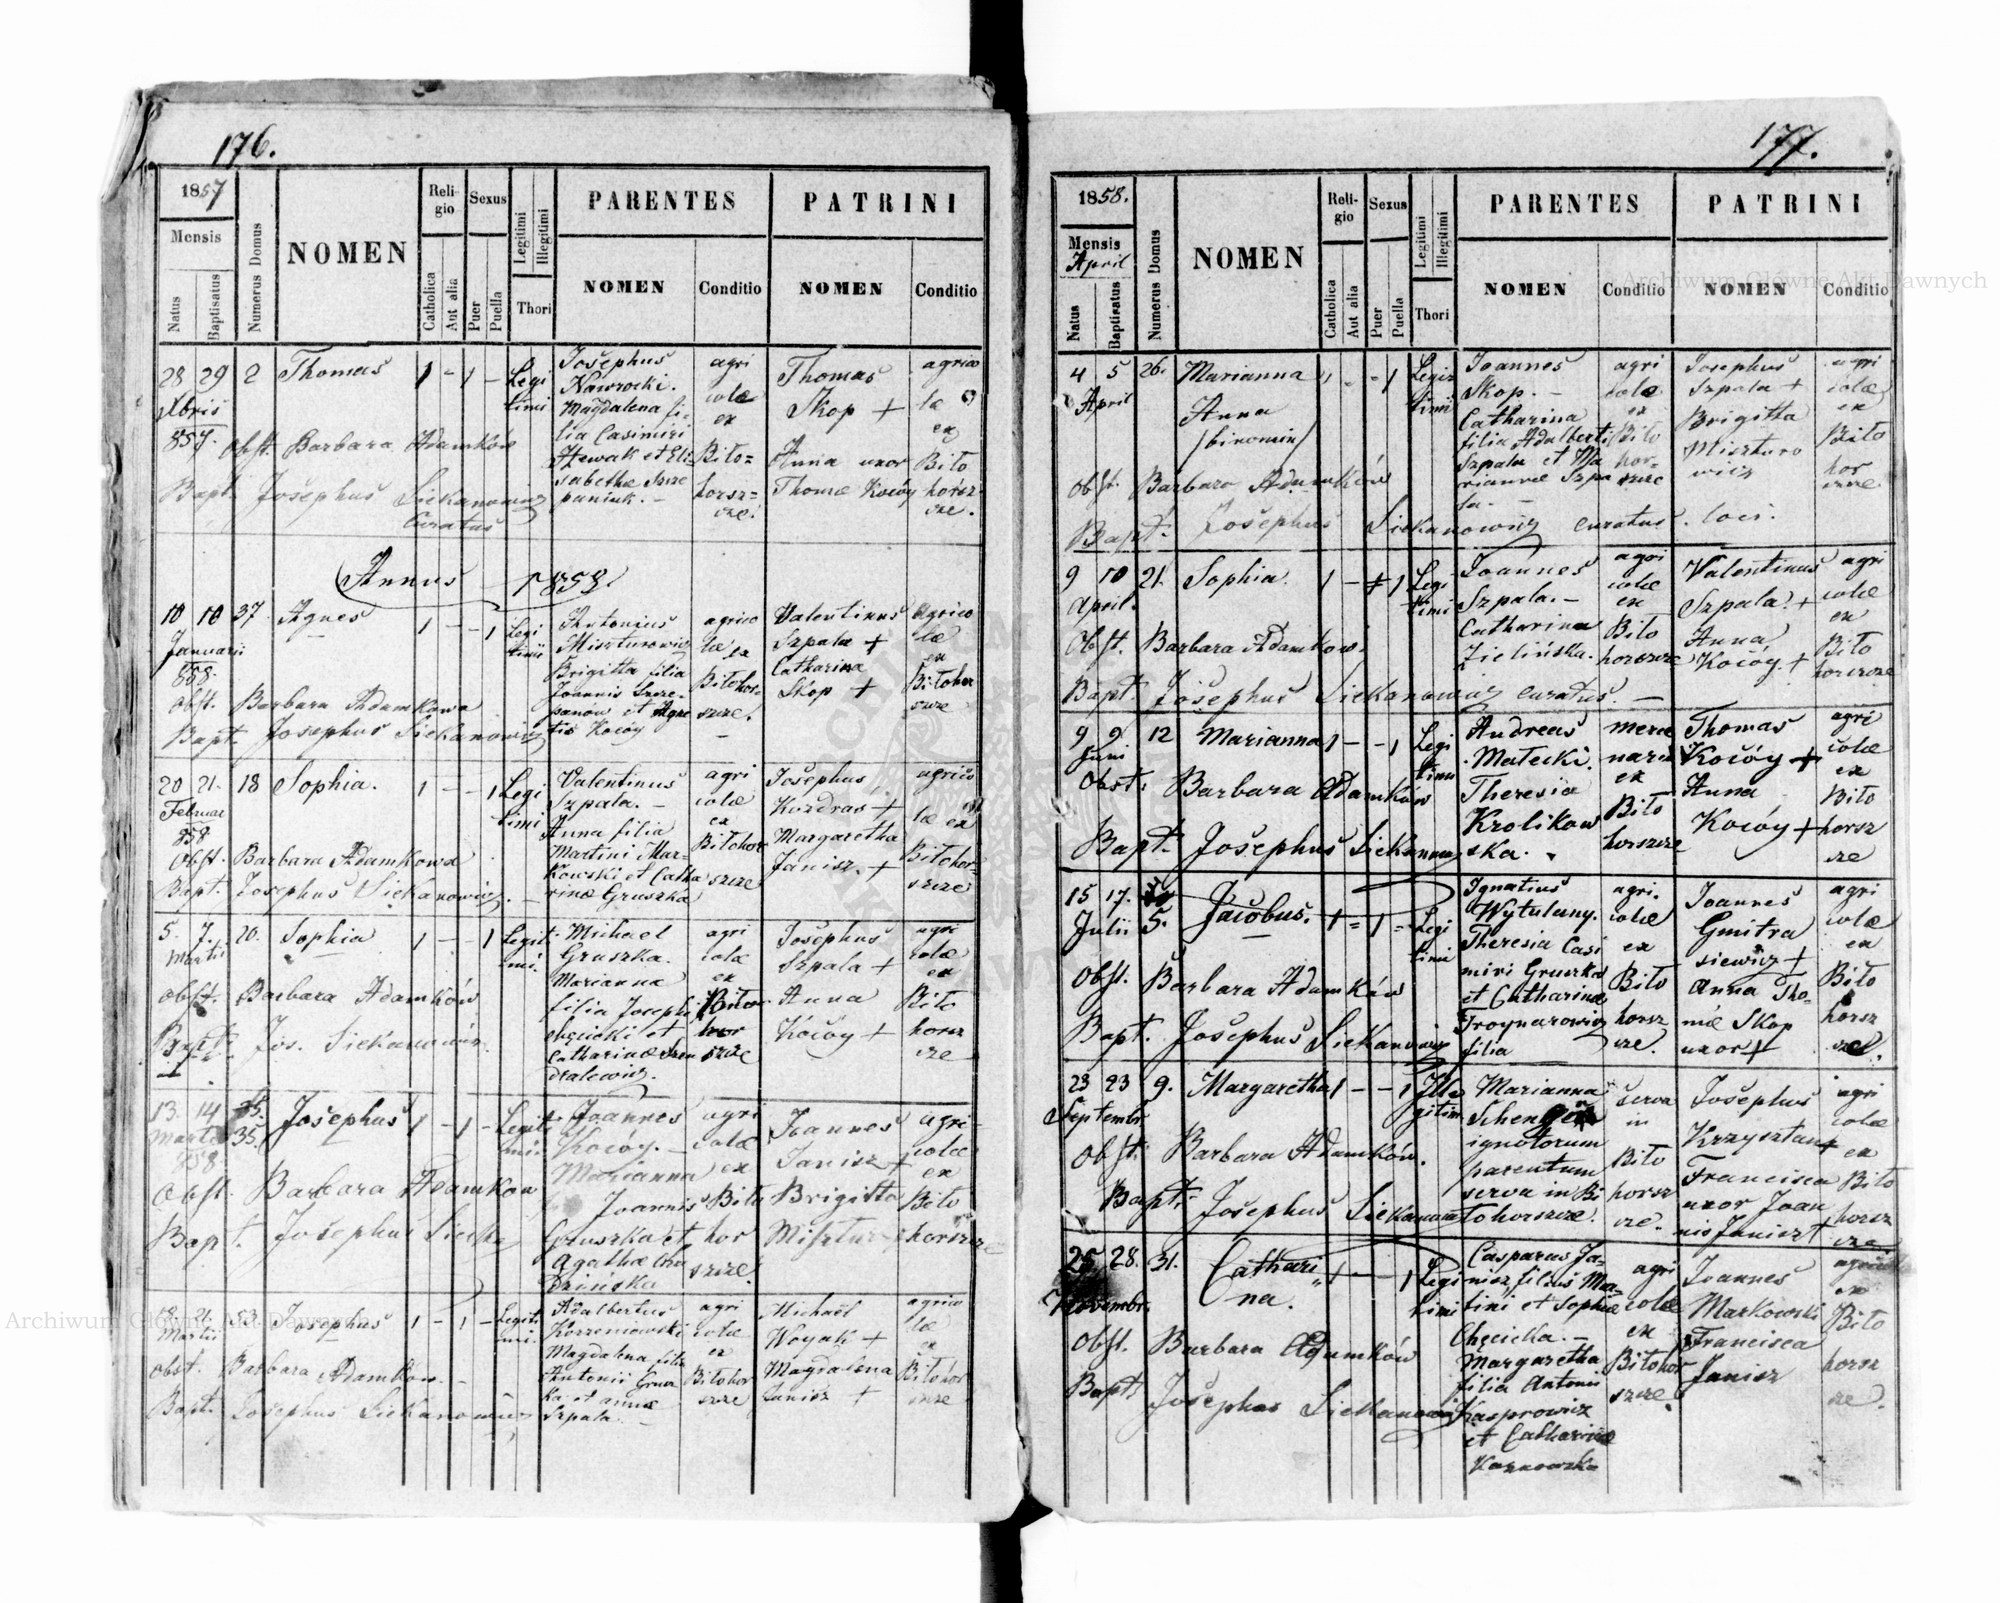 176.
1857
Mensis
Natus
Baptisatus
Numerus Domus
NOMEN
Reli-
gio
Catholica
Aut alia
Sexus
Puer
Puella
Legitimi
Illegitimi
Thori
PARENTES
NOMEN
Conditio
PATRINI
NOMEN
Conditio
28 29 2 Thomas 1 - 1 - Legi
timi
Xbris
857.
Josephus
Nawrocki.
Magdalena fi-
lia Casimiri
et Eli-
sabethæ
agri
colæ
ex
Bito=
horsz=
cze.
Thomas
Skop +
Anna uxor
Thomæ Kocóy
agrico
læ
ex
Bito
horsz.
cze.
Obst. Barbara Adamków
Bapt. Josephus Siekanowicz
Curatus
Annus 1858.
10 10 37 Agnes 1 - - 1 Legi
timi
Januarii
858.
Antonius
Miszturowicz
Brigitta filia
Joannis Szcze-
panow et Agne
tis Kocóy
agrico
læ ex
Bitohor=
szcze.
Valentinus
Szpala +
Catharina
Skop +
Agrico
læ
ex
Bitohor
szcze
Obst. Barbara Adamkowa
Bapt. Josephus Siekanowicz
20 21. 18 Sophia. 1 - - 1 Legi
timi
Februar
858
Valentinus
Szpala. -
Anna filia
Martini Mar-
kowski et Catha
rinæ Gruszka
agri
colæ
ex
Bitohor
szcze
Josephus
Kozdras +
Margaretha
Janisz. +
agrico
læ ex
Bitohor-
szcze
Obst. Barbara Adamkowa
Bapt. Josephus Siekanowicz. -
5. 7. 20. Sophia 1 - - 1 Legit
mi.
Martii
Michael
Gruszka.
Marianna
filia Josephi
Chęcicki et
Catharinæ
agri
colæ
ex
Bito
hor
szcze
Josephus
Szpala +
Anna
Kocóy +
agri
colæ
ex
Bito
horsz
cze
Obst. Barbara Adamków
Bapt. Jos. Siekanowicz.
13. 14 35. Josephus 1 - 1 - Legit
mi.
Martii
858
35.
Joannes
Kocoy. -
Marianna
Joannis
Gruszka et
Agatha
agri
colæ
ex
Bito
hor
szcze
Joannes
Janisz +
Brigitta
agri
colæ
ex
Bito
horszcze
Obst. Barbara Adamków
Bapt. Josephus
18. 21. 53. Josephus 1 - 1 - Legiti
mi.
Martii
Adalbertus
Korzeniowski
Magdalena filia
Antonii Grusz
ka et Annæ
Szpala. -
agri
colæ
ex
Bitohor
szcze
Michael
Woyak +
Magdalena
Janisz +
agrico
læ
ex
Bitohor
szcze
Obst. Barbara Adamków. -
Bapt. Josephus Siekanowicz
177.
1858.
Mensis
April
Natus
Baptisatus
Numerus Domus
NOMEN
Reli-
gio
Catholica
Aut alia
Sexus
Puer
Puella
Legitimi
Illegitimi
Thori
PARENTES
NOMEN
Conditio
PATRINI
NOMEN
Conditio
4 5 26. Marianna 1 - - 1 Legi
timi
April
Anna
/binomin/
Joannes
Skop. -
Catharina
filia Adalberti
Szpala et Ma
riannæ Szpa
la. -
agri
colæ
ex
Bito
hor=
szcze
Josephus
Szpala +
Brigitta
Miszturo
wicz
agri
colæ
ex
Bito
hor
szcze
Obst. Barbara Adamków
Bapt. Josephus Siekanowicz curatus. loci.
9 10 21. Sophia. 1 - - 1 Legi
timi
April.
Joannes
Szpala. -
Catharina
Zielińska.
agri
colæ
ex
Bito
horszcze
Valentinus
Szpala. +
Anna
Kocóy +
agri
colæ
ex
Bito
horszcze
Obst. Barbara Adamków.
Bapt Josephus Siekanowicz curatus. -
9 9 12 Marianna 1 - - 1 Legi
timi
Juni
Andreas
Matecki.
Theresia
Krolikow
ska.
merce
narii
ex
Bito
horszcze
Thomas
Kocóy +
Anna
Kocóy +
agri
colæ
ex
Bito
horsz
cze
Obst. Barbara Adamków
Bapt. Josephus Siekanowicz
15 17. 5. Jacobus. 1 = 1 = Legi
timi
Julii
Ignatius
Wytulany.
Theresia Casi
miri Gruszka
et Catharinæ
Troynarowicz
filia
agri.
colæ
ex
Bito
horsz
cze.
Joannes
Gmitra
siewicz +
Anna Tho-
mæ Skop
uxor +
agri
colæ
ex
Bito
horsz
cze.
Obst. Barbara Adamków
Bapt. Josephus Siekanowicz
23 23 9. Margaretha 1 - - 1 Ille
gitim
Septembr
Marianna
ignotorum
parentum
serva in Bi
tohorszcze.
serva
in
Bito
horsz
cze.
Josephus
Krzysztan +
Francisca
uxor Joan
nis Janisz +
agri
colæ
ex
Bito
horsz
cze
Obst. Barbara Adamków.
Bapt. Josephus Siekanowicz
25 28. 31. Cathari 1 - - 1 Legi
na. timi
Novembr.
Casparus Ja-
nisz filius Mar-
tini et Sophiæ
Chęcicka. -
Margaretha
filia Antonii
Kasprowicz
et Catharinæ
agri
colæ
ex
Bitohor
szcze.
Joannes
Markowski
Francisca
Janisz
agricolæ
ex
Bito
horsz
cze.
Obst. Barbara Adamków
Bapt. Josephus Siekanowicz
Archiwum Główne Akt Dawnych
Archiwum Główne Akt Dawnych